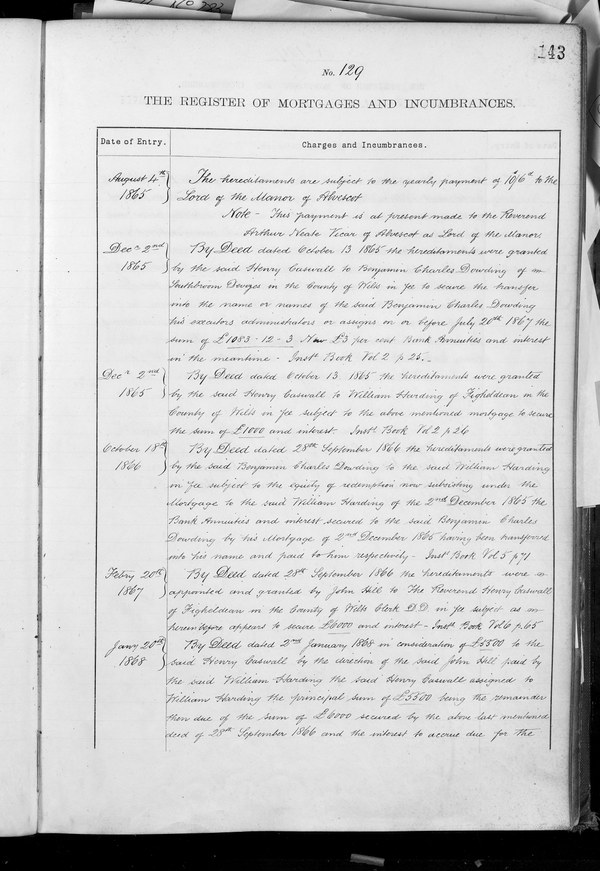 143
No. 129
THE REGISTER OF MORTGAGES AND INCUMBRANCES.
Date of Entry.
Charges and Incumbrances.
August 4th 1865
The hereditaments are subject to the yearly payment of 10/6d to the
Lord of the Manor of Alvescot
Note - This payment is at present made to the Reverend
Arthur Neate Vicar of Alvescot as Lord of the Manor
Decr 2nd 1865
By Deed dated October 13 1865 the hereditaments were granted
by the said Henry Caswall to Benjamin Charles Dowding of
Southbroom Devizes in the County of Wilts in fee to secure the transfer
into the name or names of the said Benjamin Charles Dowding
his executors administrators or assigns on or before July 20th 1867 the
sum of £1083-12-3 New £3 per cent Bank Annuities and interest
in the meantime - Instt Book Vol 2 p 25.
Decr 2nd 1865
By Deed dated October 13, 1865 the hereditaments were granted
by the said Henry Caswall to William Harding of Figheldean in the
County of Wilts in fee subject to the above mentioned mortgage to secure
the sum of £1000 and interest - Instt Book Vol 2 p 26
October 18th 1866
By Deed dated 28th September 1866 the hereditaments were granted
by the said Benjamin Charles Dowding to the said William Harding
in fee subject to the equity of redemption now subsisting under the
Mortgage to the said William Harding of the 2nd December 1865 the
Bank Annuities and interest secured to the said Benjamin Charles
Dowding by his Mortgage of 2nd December 1865 having been transferred
into his name and paid to him respectively - Instt Book Vol 5 p 71
Febry 20th 1867
By Deed dated 28th September 1866 the hereditaments were
appointed and granted by John Hill to The Reverend Henry Caswall
of Figheldean in the County of Wilts Clerk D.D. in fee subject as
hereinbefore appears to secure £6000 and interest - Instt Book Vol 6 p. 65
Jany 20th 1868
By Deed dated 2nd January 1868 in consideration of £5500 to the
said Henry Caswall by the direction of the said John Hill paid by
the said William Harding the said Henry Caswall assigned to
William Harding the principal sum of £5500 being the remainder
then due of the sum of £6000 secured by the above last mentioned
deed of 28th September 1866 and the interest to accrue due for the